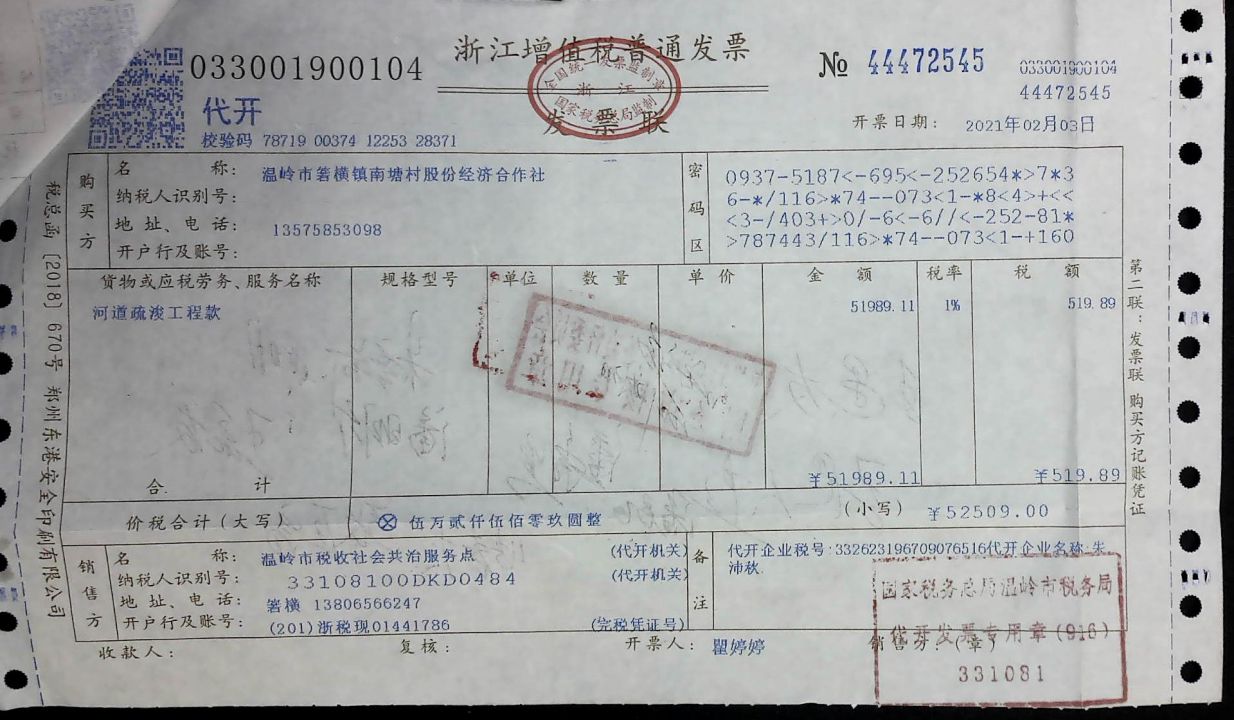 浙江增值税普通发票
033001900104
No 44472545
033001900104
44472545
代开
发票联
全国统一发票监制章
浙江
国家税务总局监制
校验码 78719 00374 12253 28371
开票日期： 2021年02月03日
购买方
名称： 温岭市箬横镇南塘村股份经济合作社
纳税人识别号：
地址、电话： 13575853098
开户行及账号：
密码区
0937-5187<-695<-252654*>7*3
6-*/116>*74--073<1-*8<4>+<<
<3-/403+>0/-6<-6//<-252-81*
>787443/116>*74--073<1-+160
货物或应税劳务、服务名称 规格型号 单位 数量 单价 金额 税率 税额
河道疏浚工程款 51989.11 1% 519.89
合计 ¥51989.11 ¥519.89
价税合计（大写） ⊗ 伍万贰仟伍佰零玖圆整 （小写） ¥52509.00
销售方
名称： 温岭市税收社会共治服务点 (代开机关)
纳税人识别号： 33108100DKD0484 (代开机关)
地址、电话： 箬横 13806566247
开户行及账号： (201)浙税现01441786 (完税凭证号)
备注
代开企业税号:332623196709076516代开企业名称:朱
沛秋
收款人： 复核： 开票人： 瞿婷婷 销售方：（章）
国家税务总局温岭市税务局
代开发票专用章(916)
331081
税总函〔2018〕670号 郑州东港安全印刷有限公司
第二联：发票联 购买方记账凭证